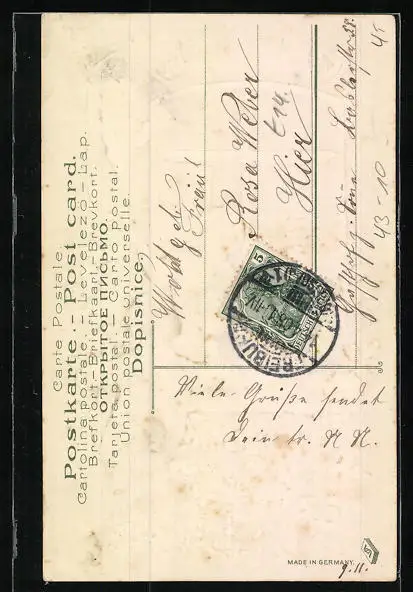 Carte Postale.
Postkarte. - Post card.
Cartolina postale. - Levelező-Lap.
Brefkort.-Briefkaart.-Brevkort.
ОТКРЫТОЕ ПИСЬМО.
Tarjeta postal. - Carto postal.
Union postale universelle.
Dopisnice.
Wohlgeb.
Fräul
Rosa Weber
Hier
43 - 10 -
45
5
Viele Grüße sendet
Dein tr. N N.
MADE IN GERMANY.
9.11.